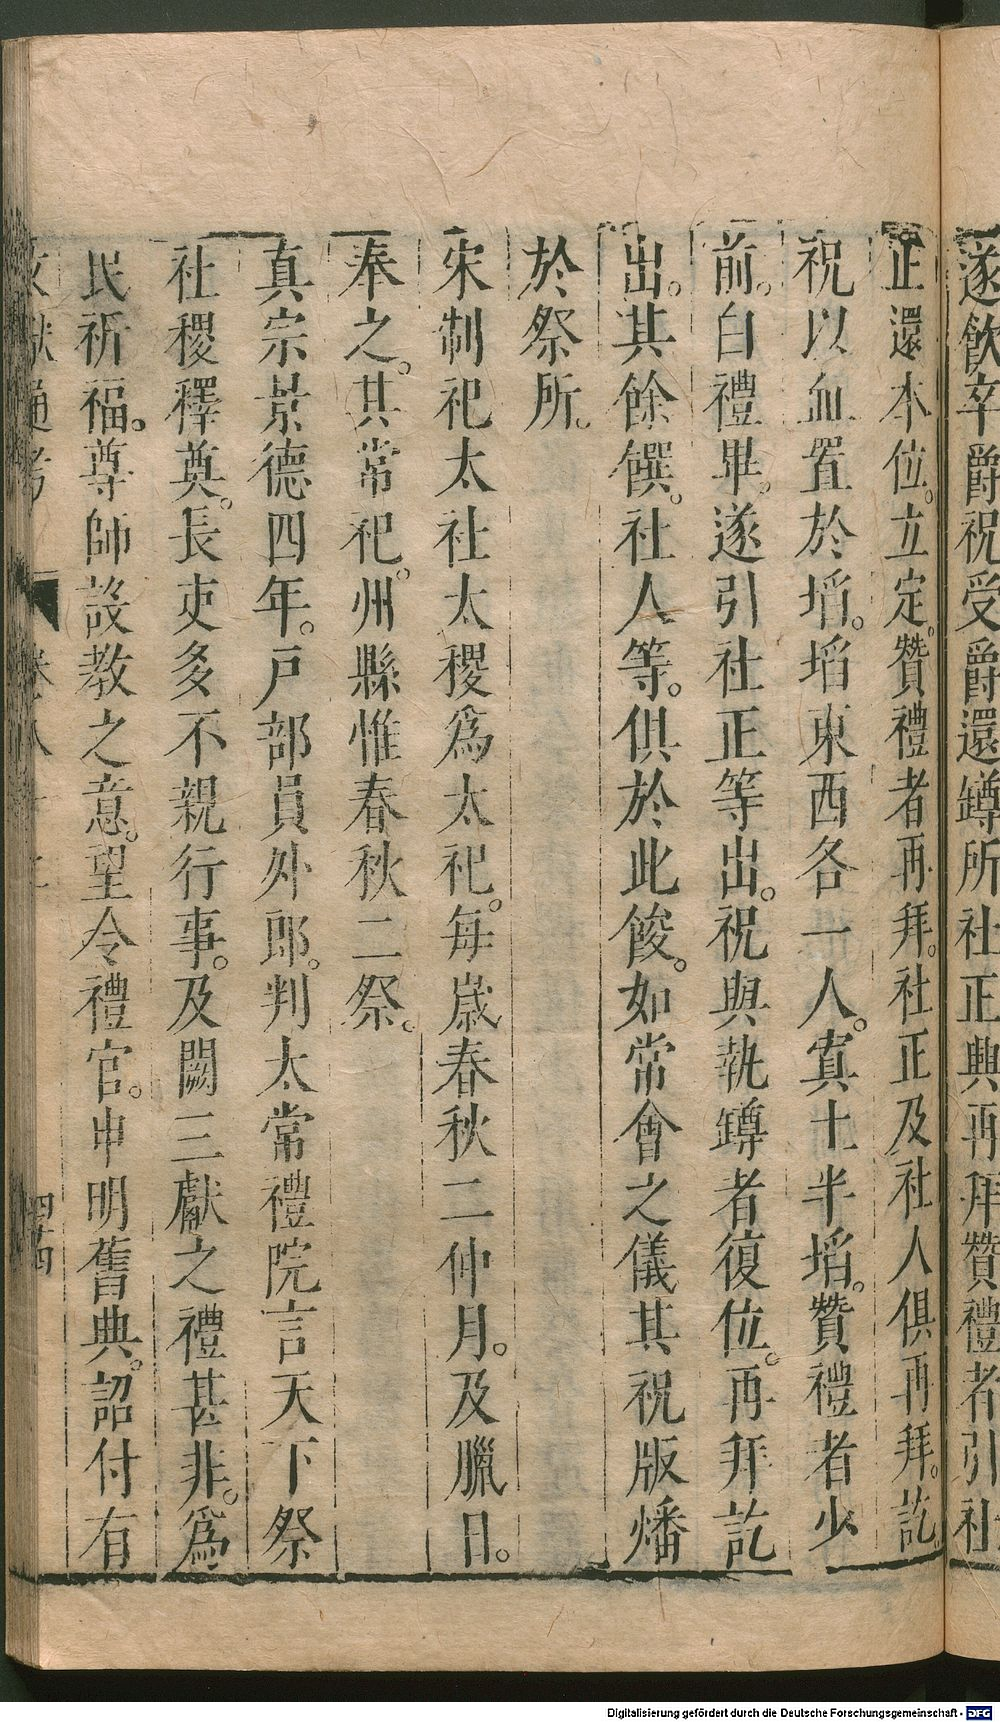 遂飲卒爵祝受爵還罇所社正興再拜贊禮者引社
正還本位。立定。贊禮者再拜。社正及社人俱再拜。訖。
祝以血置於埳。埳東西各一人。寘土半埳。贊禮者少
前。白禮畢。遂引社正等出。祝與執罇者復位。再拜訖
出。其餘饌。社人等。俱於此餕。如常會之儀其祝版燔
於祭所。
宋制祀太社太稷為太祀。每歲春秋二仲月。及臘日。
奉之。其常祀。州縣惟春秋二祭。
真宗景德四年。戶部員外郎。判太常禮院言天下祭
社稷釋奠。長吏多不親行事。及闕三獻之禮甚非。為
民祈福。尊師設教之意。望令禮官。申明舊典。詔付有
文獻通考
四十四
Digitalisierung gefördert durch die Deutsche Forschungsgemeinschaft - DFG